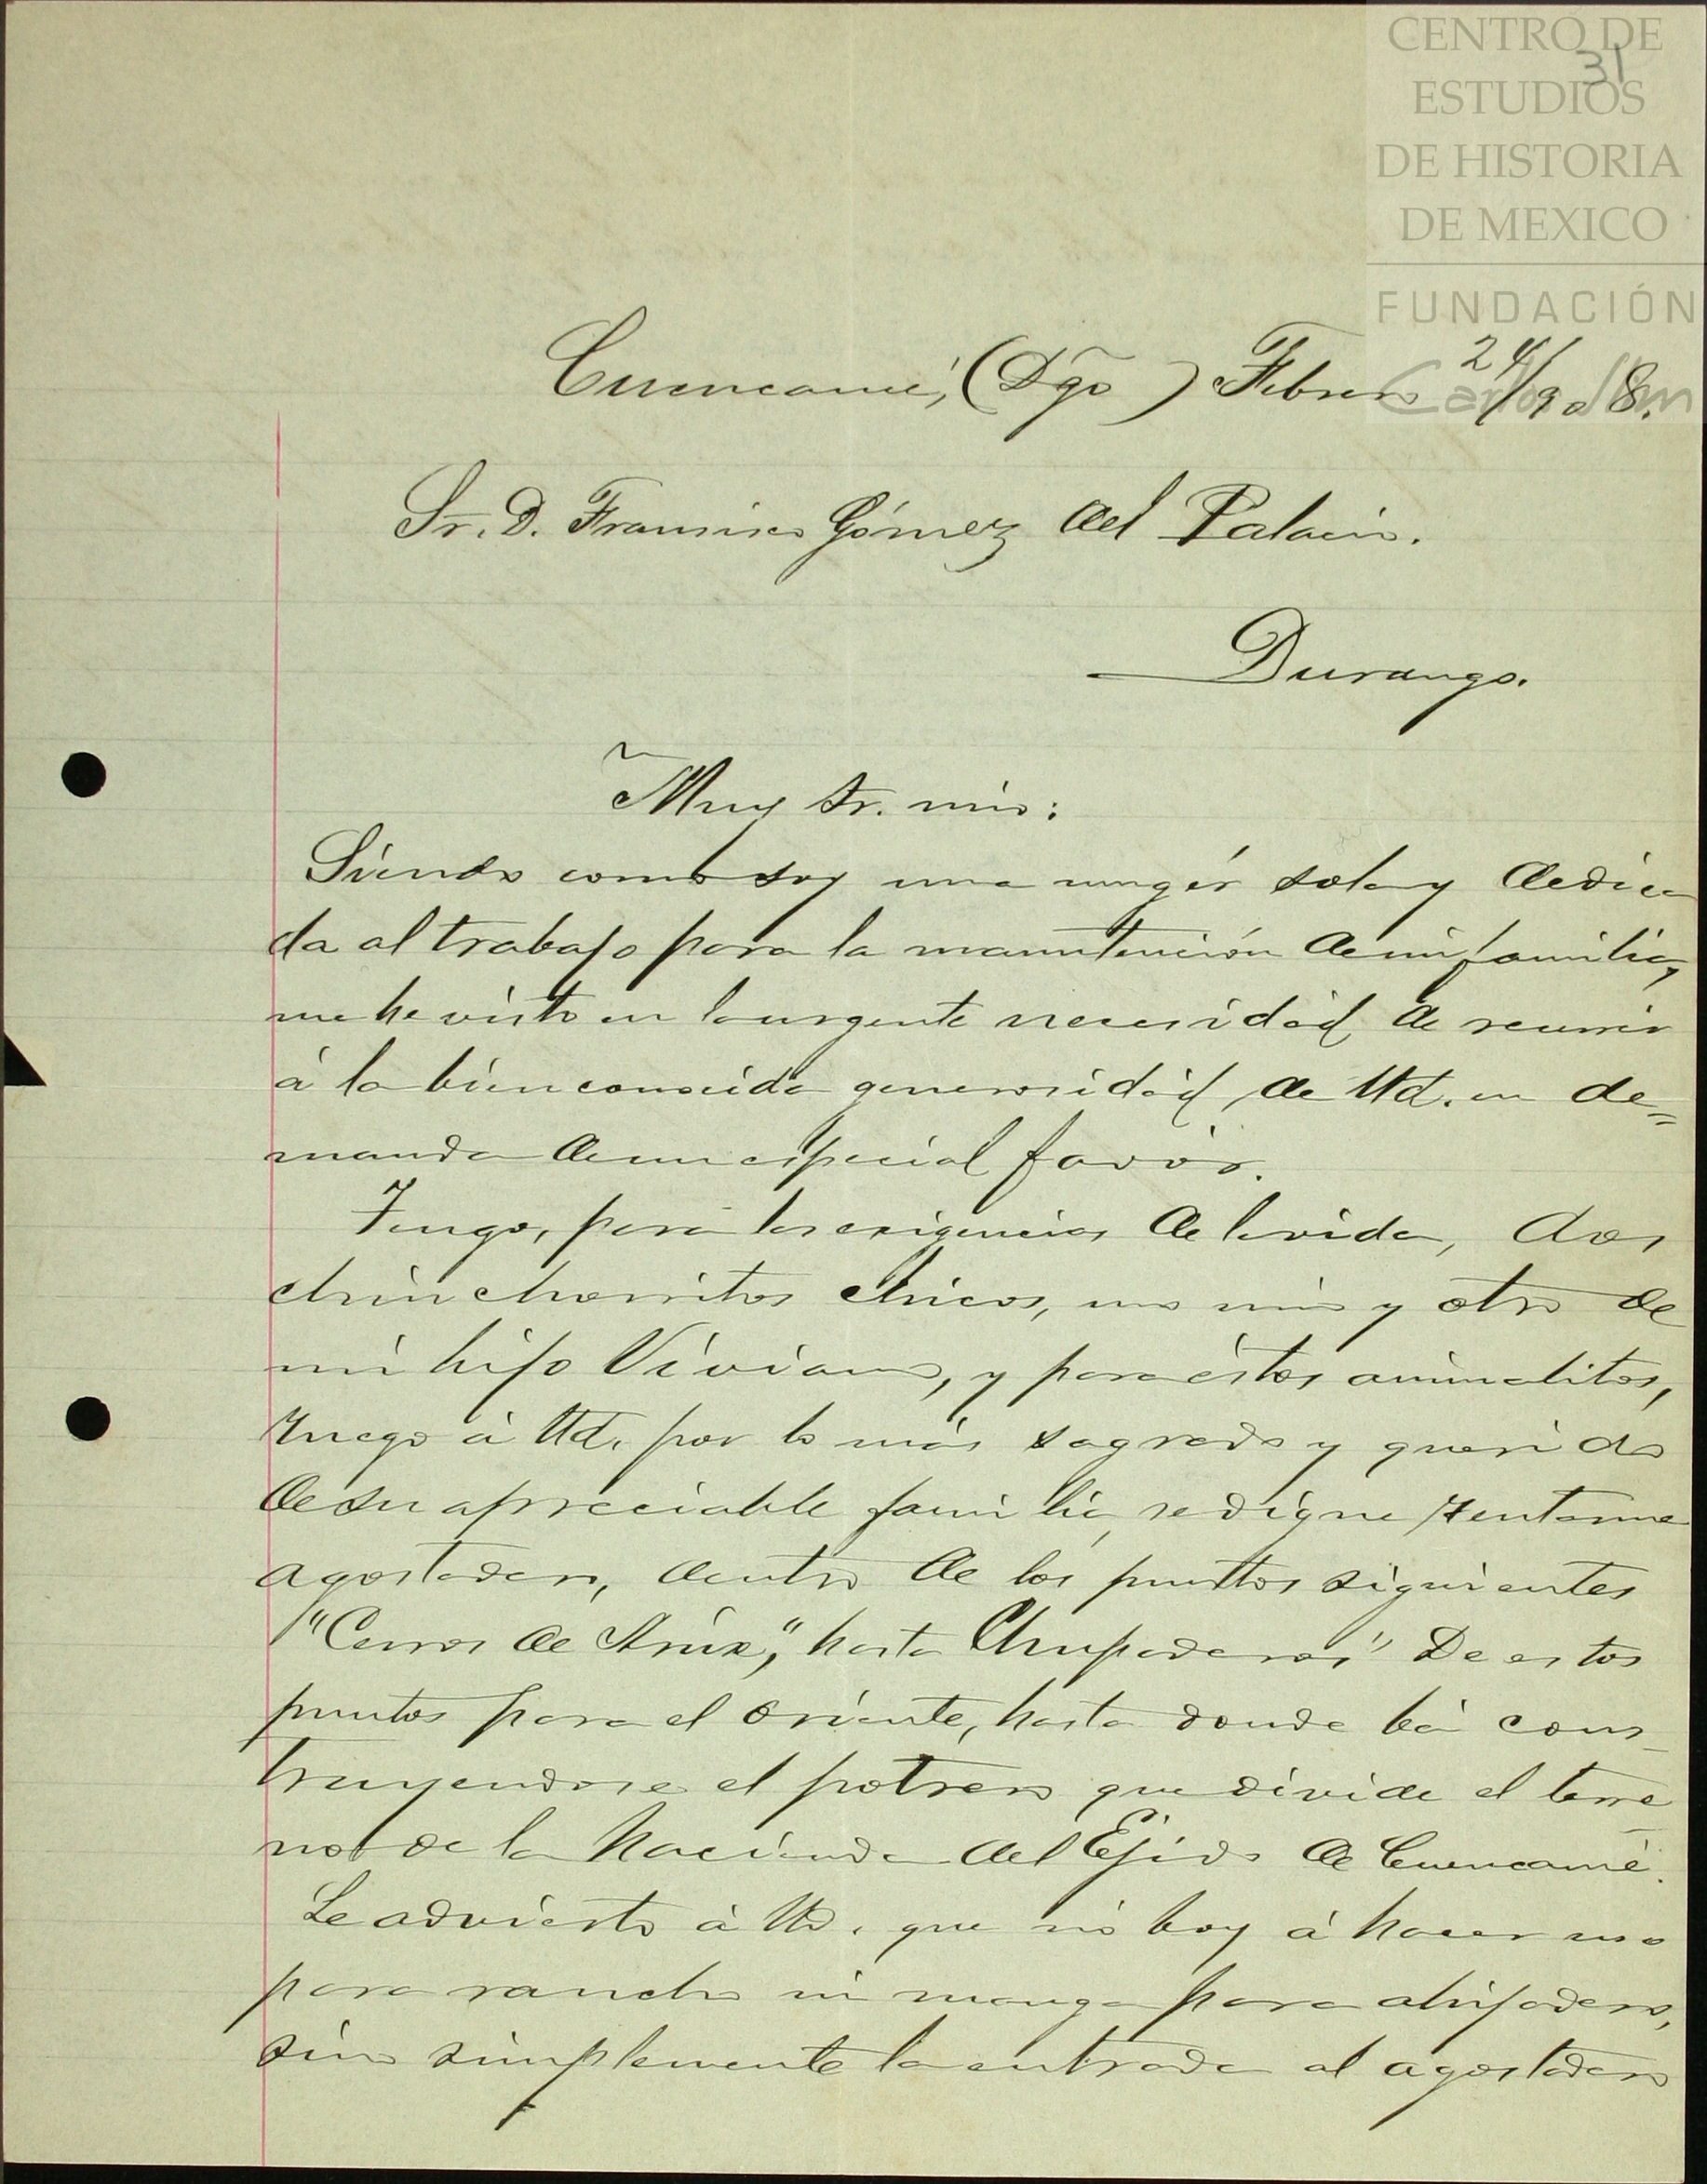 CENTRO DE
31
ESTUDIOS
DE HISTORIA
DE MEXICO
FUNDACIÓN
Carlos Slim
Cuencamé, (Dgo) Febrero 24/908.
Sr. D. Francisco Gómez del Palacio.
Durango.
Muy Sr. mio:
Siendo como soy una mugér sola y dedica
da al trabajo para la manutención de mi familia,
me he visto en la urgente necesidád de recurrir
á la bien conocida generosidád de Ud. en de=
manda de un especial favór.
Tengo, para las exigencias de la vida, dos
chinchorritos chicos, uno mio y otro de
mi hijo Viviano, y para éstos animalitos,
ruego á Ud. por lo más sagrado y querido
de su apreciable familia, se digne rentarme
agostadero, dentro de los puntos siguientes
"Cerros de" hasta Chupaderos" De estos
puntos para el oriente, hasta donde bá cons_
truyendose el potrero que divide el terre_
no de la hacienda del Ejido de Cuencamé.
Le advierto á Ud. que nó boy á hacer uso
para rancho ni manga para ahijadero,
sino simplemente la entrada al agostadero